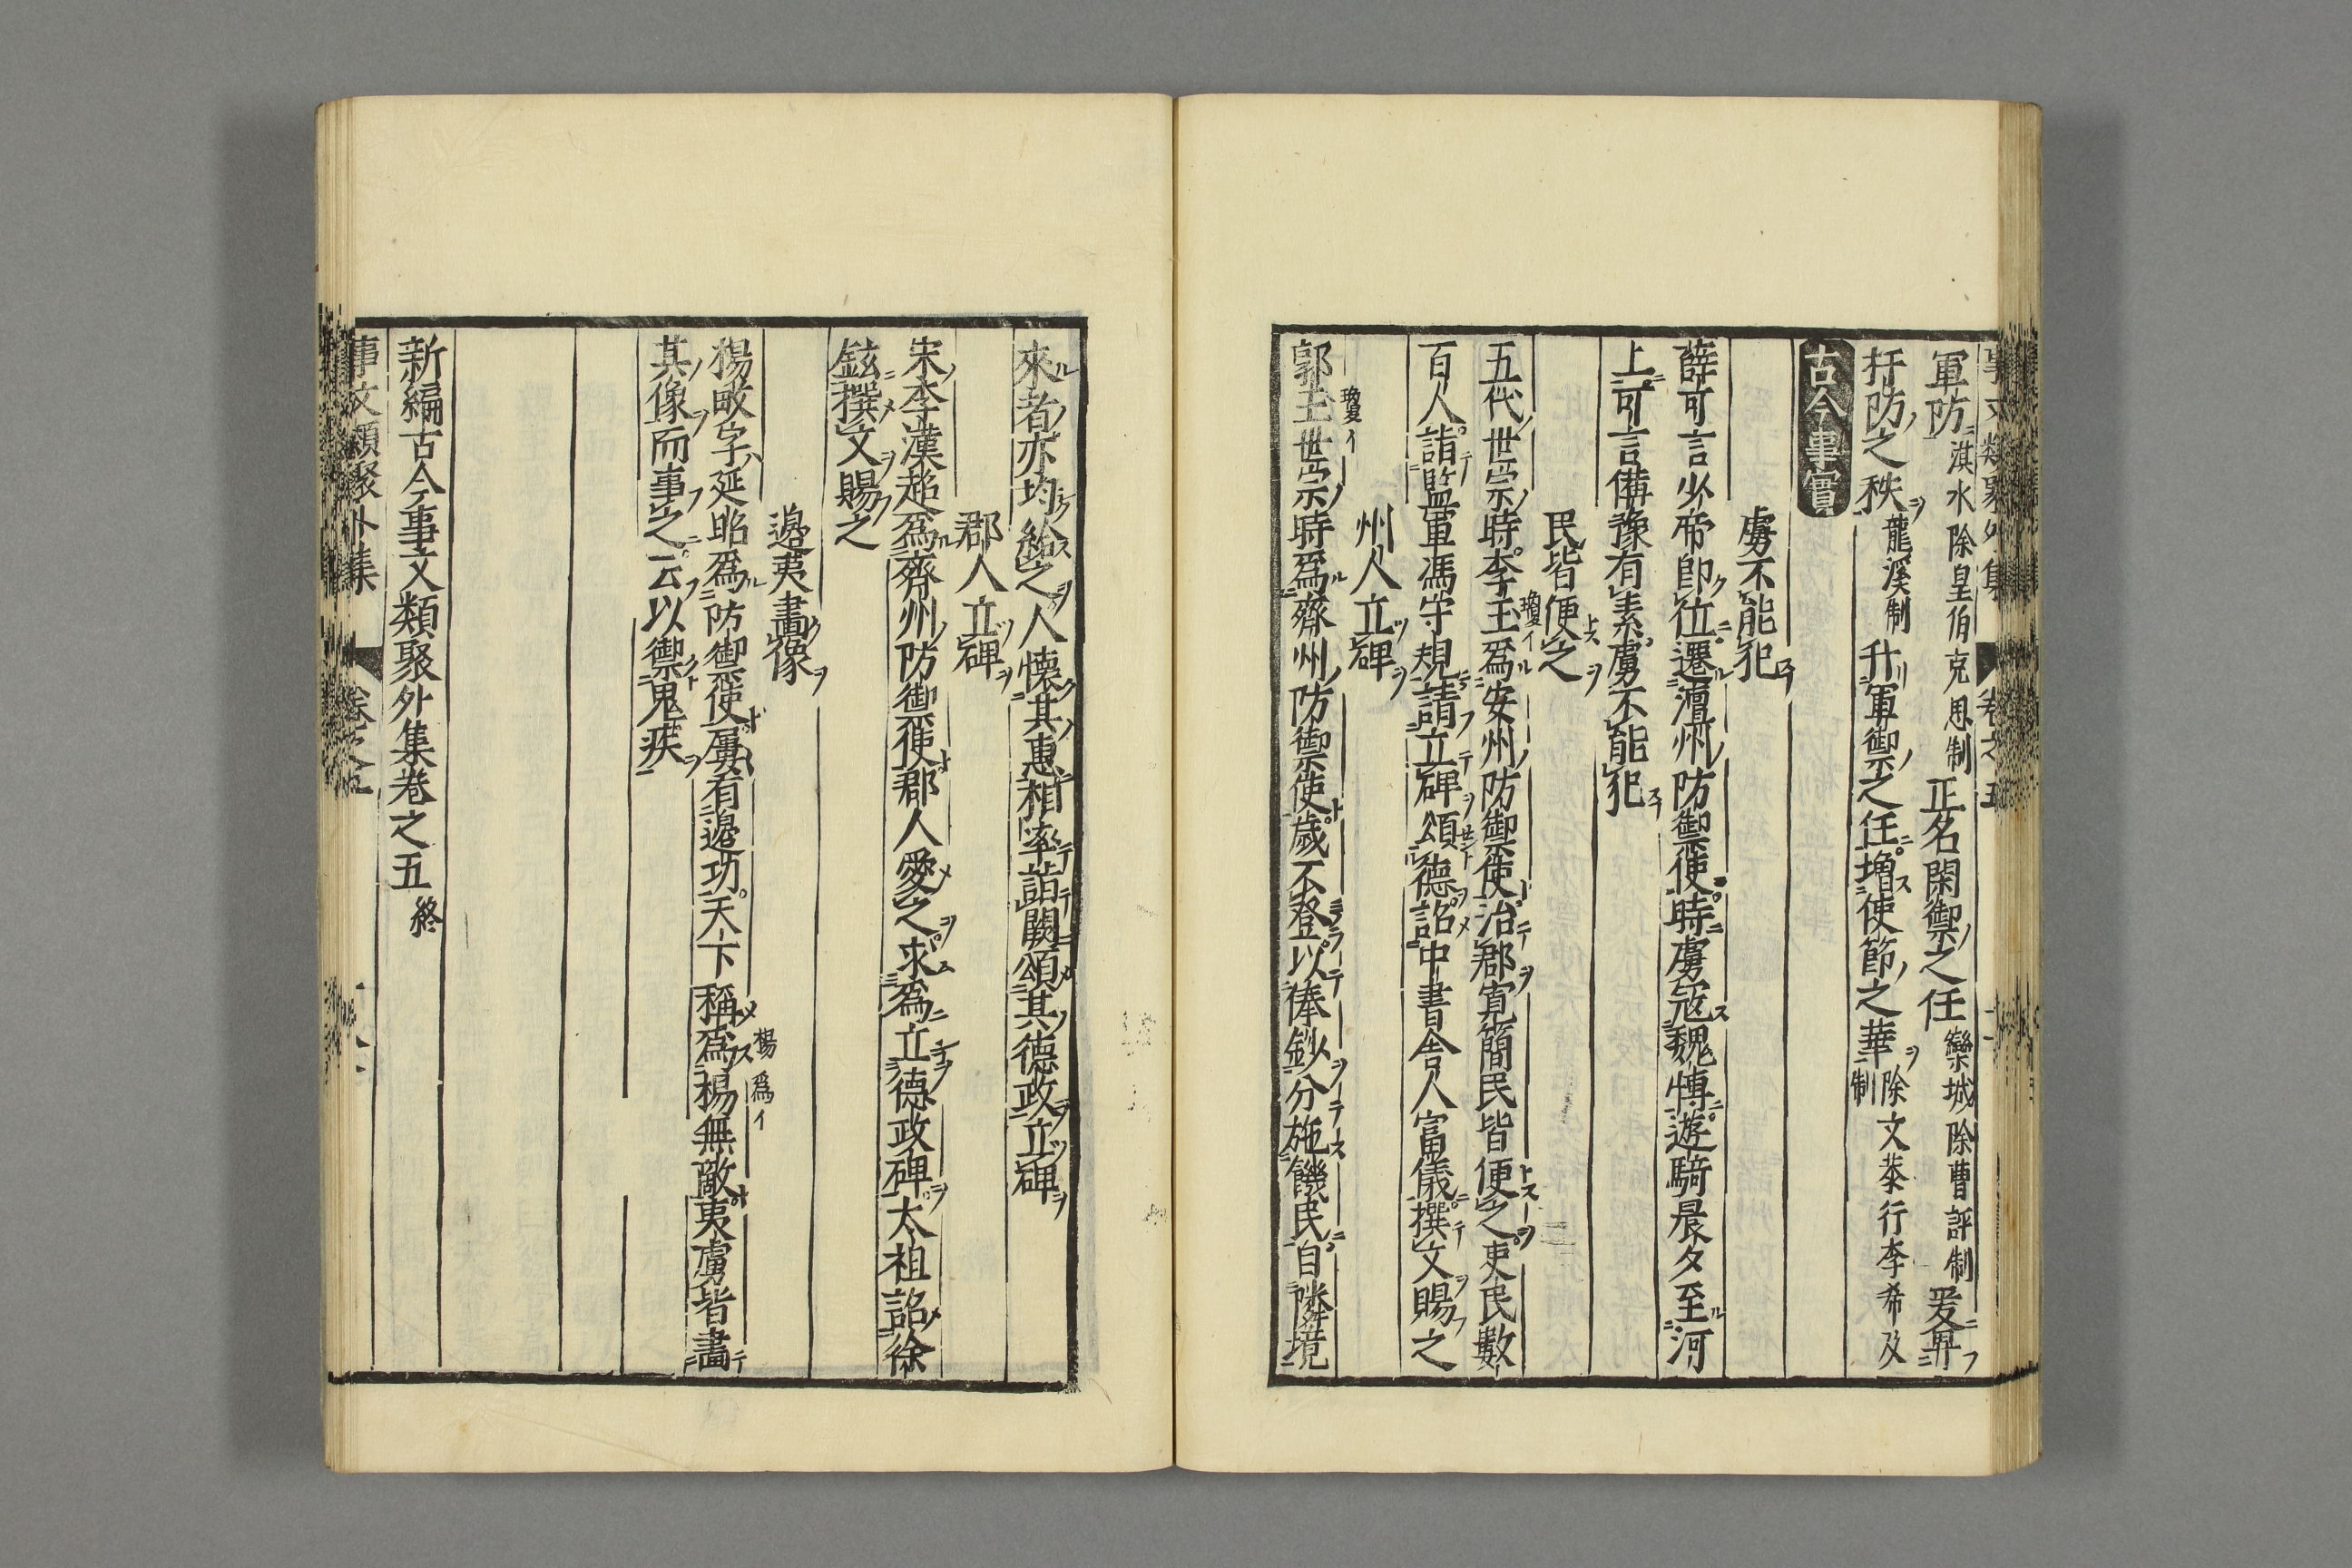 軍防淇水除皇伯克思制正名閑禦之任欒城除曹評制爰畀
扞防之秩龍溪制升軍禦之任增使節之華除文榮行李希及制
古今事實
虜不能犯
薛可言少帝即位遷澶州防禦使時虜寇魏博遊騎晨夕至河
上可言備豫有素虜不能犯
民皆便之
五代世宗時李玉瓊イ爲安州防禦使治郡寬簡民皆便之吏民數
百人詣監軍馮守規請立碑頌德詔中書舍人富儀撰文賜之
州人立碑
郭玉瓊イ世宗時爲齊州防禦使歲不登以俸鈔分施饑民自隣境
來者亦均給之人懷其惠相率詣闕頌其德政立碑
郡人立碑
宋李漢超爲齊州防禦使郡人愛之求爲立德政碑太祖詔徐
鉉撰文賜之
邊夷畫像
楊畋字延昭爲防禦使屢有邊功天下稱爲楊無敵夷虜皆畵
楊爲イ
其像而事之云以禦鬼疾
新編古今事文類聚外集卷之五終
事文類聚外集 卷之五